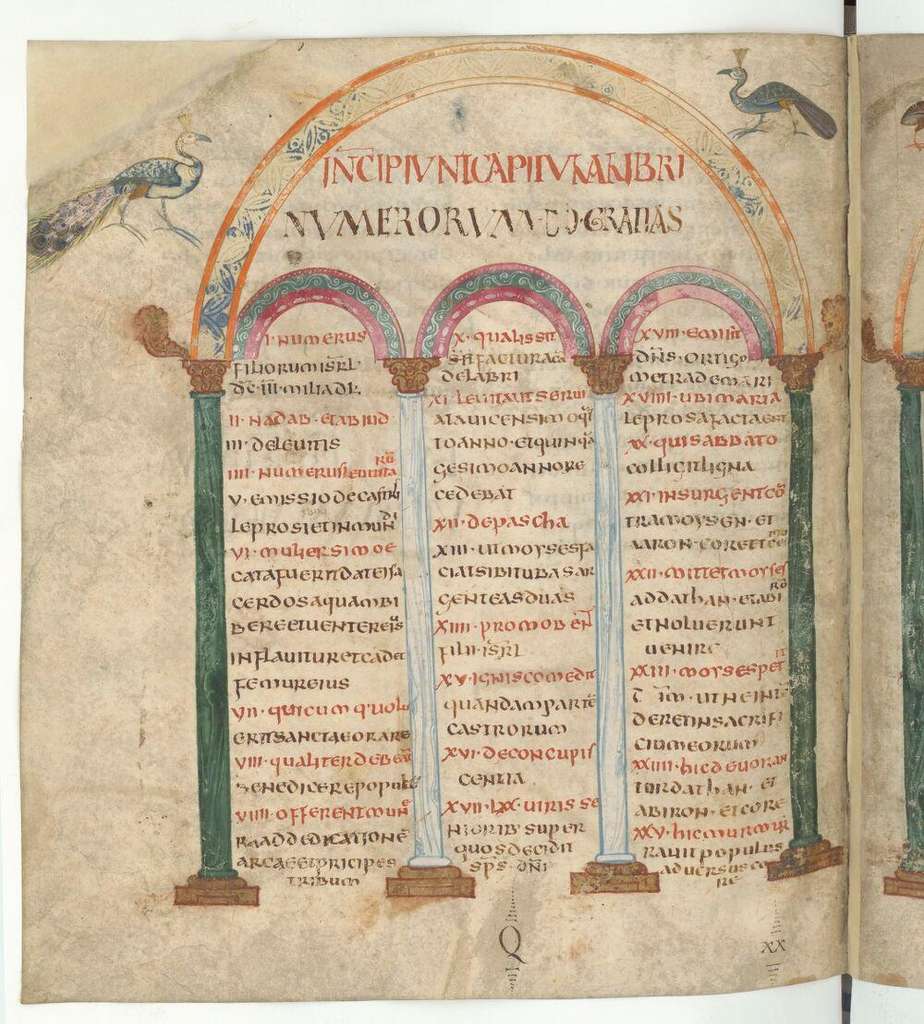 INCIPIUNT CAPITULA LIBRI
NUMERORUM · DO GRATIAS
I · NUMERUS
FILIORUM ISRL
II · NADAB · ET ABIUD
III · DE LEUITIS
IIII · NUMERUS LEUITARŪ
V · EMISSIO DE CASTRIS
LEPROSI ET INMUNDI
VI · MULIER SI MOE
CATA FUERIT DATE ISA
CERDOS AQUAM BI
BERE ET UENTER EIUS
INFLAUITUR ET CADET
FEMUR EIUS
VII · QUICUMQ UOLU
ERIT SANCTAE ORARE
VIII · QUALITER DEBEAT
BENEDICERE POPULUM
VIIII · OFFERENT MUNE
RA AD DEDICATIONE
ARCAE ET PRICIPES
TRIBUUM
X · QUALIS SIT
FACTURA CAN
DELABRI
XI · LEUITAE UT SERUI
ANT A UICENSIMO QUIN
TO ANNO · ET QUINQUA
GESIMO ANNO RE
CEDEBAT
XII · DE PASCHA
XIII · UT MOYSES FA
CIAT SIBI TUBAS AR
GENTEAS DUAS
XIIII · PROMOB EN
FILII · ISRL
XV · IGNIS COMEDIT
QUANDAM PARTE
CASTRORUM
XVI · DE CONCUPIS
CENTIA
XVII · LXX · UIRIS SE
NIORIB SUPER
QUOS DECIDIT
SPS DNI
XVIII · EMITTIT
DNS · ORTIGO
METRA DE MARI
XVIIII · UBI MARIA
LEPROSA FACTA EST
XX · QUI SABBATO
COLLIGIT LIGNA
XXI · INSURGENT CO
TRA MOYSEN · ET
AARON · CORE ET CETERI
XXII · MITTET MOYSES
AD DATHAN · ET ABIRO
ET NOLUERUNT
UENIRE
XXIII · MOYSES PETIT
DERET IN SACRIFI
CIUM EORUM
XXIIII · HIC DEUORAN
TUR DATHAN · ET
ABIRON · ET CORE
XXV · HIC MURMUR
RAUIT POPULUS
ADUERSUS CO
RE
Q
XX